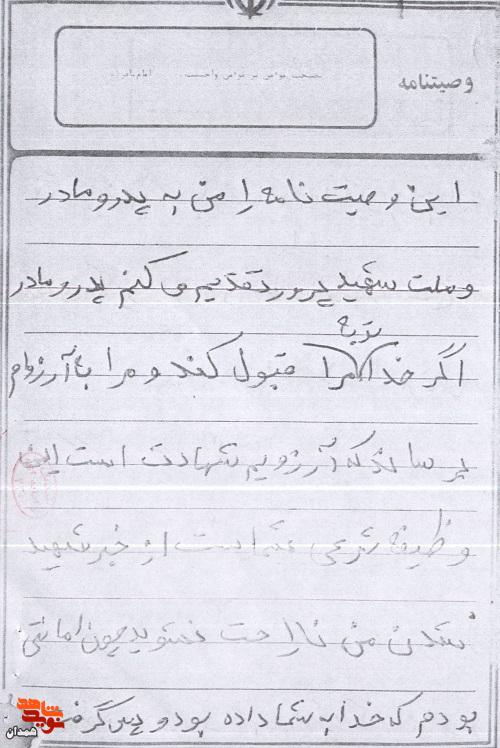 وصیتنامه
این وصیت نامه را من به پدر و مادر
و ملت شهید پرور تقدیم می کنم پدر و مادر
توبه
اگر خدا مرا قبول کند و مرا با آرزوام
برساند که آرزویم شهادت است این
وظیفه شرعی شما است از خبر شهید
شدن من ناراحت نشوید چون امانتی
بودم که خدا به شما داده بود و پس گرفت
نوید شاهد
همدان